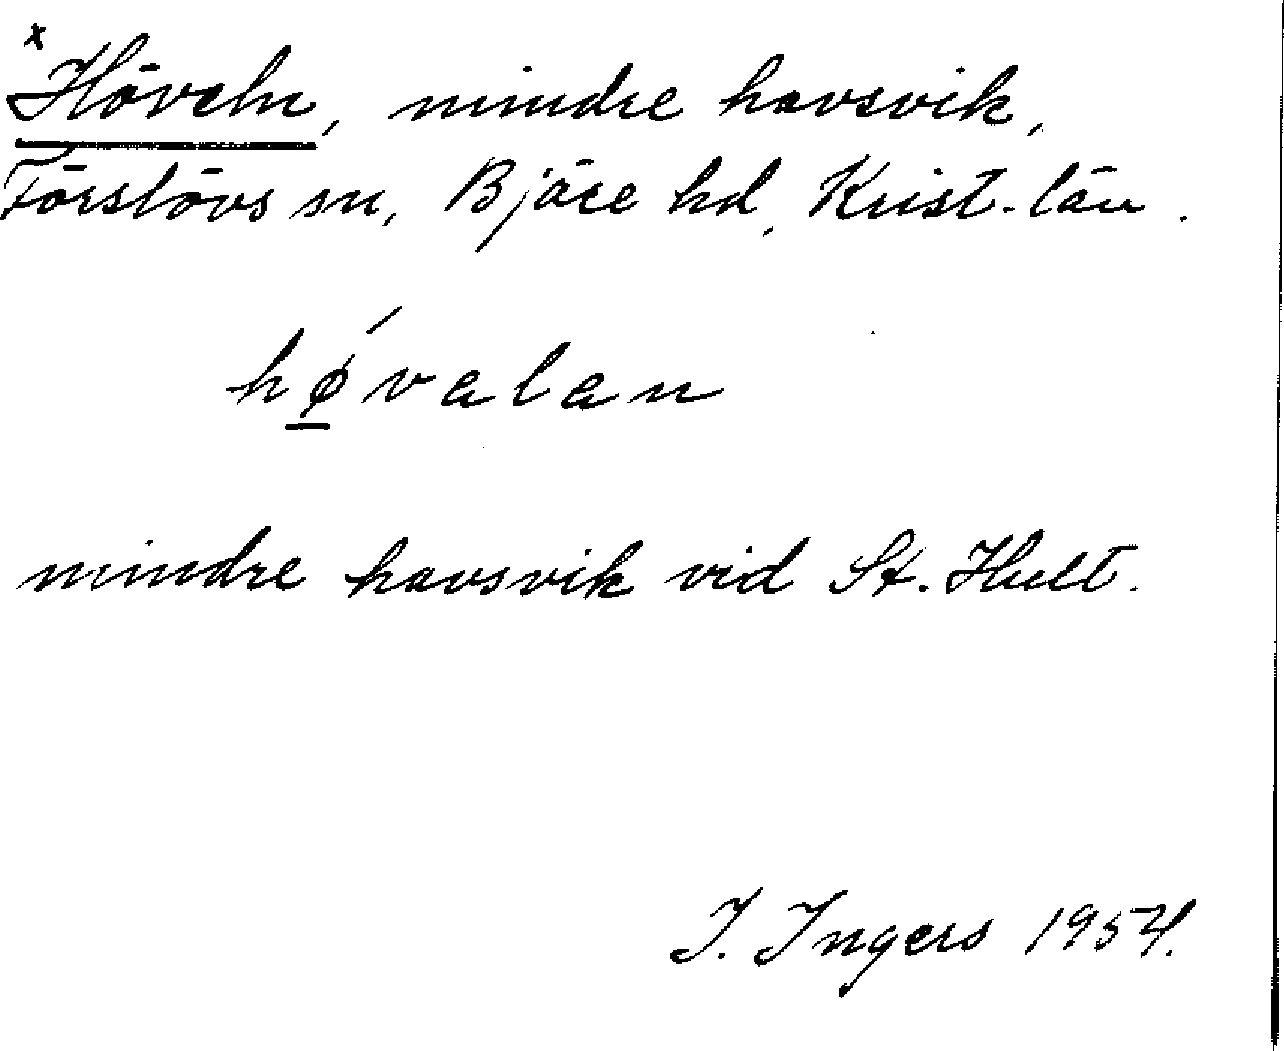 x
Höveln, mindre havsvik,
Förslövs sn, Bjäre hd, Krist. län.
hǿvalan
mindre havsvik vid St. Hult.
I. Ingers 1954.